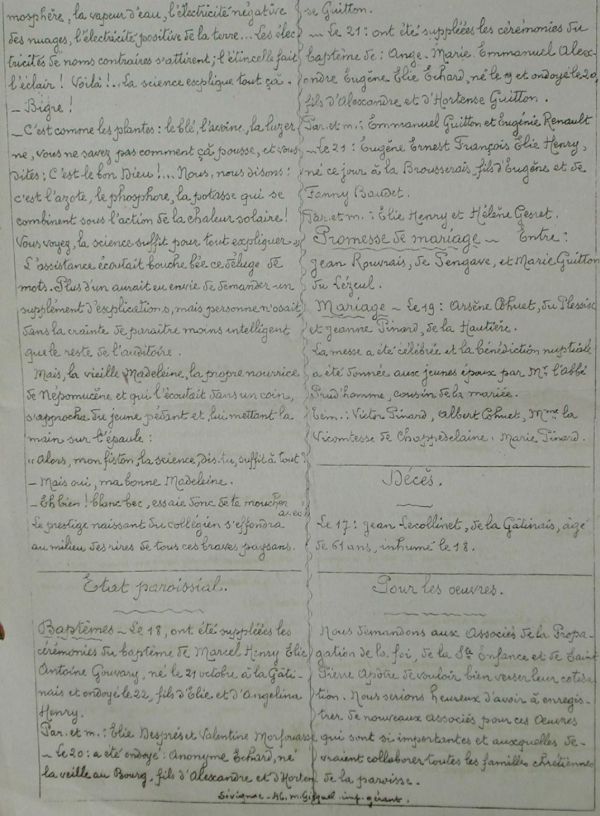 mosphère, la vapeur d'eau, l'électricité négative
des nuages, l'électricité positive de la terre... Les élec
tricités de noms contraires s'attirent; l'étincelle fait
l'éclair ! Voilà !... La science explique tout çà.
– Bigre !
– C'est comme les plantes : le blé, l'avoine, la luzer
ne, vous ne savez pas comment çà pousse, et vous
dites : C'est le bon Dieu !... Nous, nous disons :
c'est l'azote, le phosphore, la potasse qui se
combinent sous l'action de la chaleur solaire !
Vous voyez, la science suffit pour tout expliquer.
L'assistance écoutait bouche bée ce déluge de
mots. Plus d'un aurait eu envie de demander un
supplément d'explications, mais personne n'osait
dans la crainte de paraître moins intelligent
que le reste de l'auditoire.
Mais, la vieille Madeleine, la propre nourrice
de Nepomucène et qui l'écoutait dans un coin,
s'approcha du jeune pédant et, lui mettant la
main sur l'épaule :
"Alors, mon fiston, la science, dis-tu, suffit à tout ?
– Mais oui, ma bonne Madeleine.
– Eh bien ! blanc-bec, essaie donc de te moucher
avec !"
Le prestige naissant du collégien s'effondra
au milieu des rires de tous ces braves paysans.
Etat paroissial.
Baptêmes – Le 18, ont été suppléées les
cérémonies du baptême de Marcel Henry Elie
Antoine Gouvary, né le 21 octobre à la Gâti-
nais et ondoyé le 22, fils d'Elie et d'Angelina
Henry.
Par. et m. : Elie Després et Valentine Morfouasse
– Le 20 : a été ondoyé : Anonyme Echard, né
la veille au Bourg, fils d'Alexandre et d'Horten
se Guitton.
– Le 21 : ont été suppléées les cérémonies du
baptême de : Ange-Marie Emmanuel Alex-
andre Eugène Elie Echard, né le 19 et ondoyé le 20,
fils d'Alexandre et d'Hortense Guitton.
Par. et m. : Emmanuel Guitton et Eugénie Renault
– Le 21 : Eugène Ernest François Elie Henry,
né ce jour à la Brousserais, fils d'Eugène et de
Fanny Baudet.
Par. et m. : Elie Henry et Hélène Gesret.
Promesse de mariage – Entre :
Jean Rouvrais, de Pengave, et Marie Guitton
du Lézeul.
Mariage – Le 19 : Arsène Cohuet, du Plessis
et Jeanne Pinard, de la Hautière.
La messe a été célébrée et la bénédiction nuptiale
a été donnée aux jeunes époux par Mr l'abbé
Prud'homme, cousin de la mariée.
Tem. : Victor Pinard, Albert Cohuet, Mme la
Vicomtesse de Chappedelaine, Marie Pinard.
Décès.
Le 17 : Jean Lecollinet, de la Gâtinais, âgé
de 61 ans, inhumé le 18.
Pour les oeuvres.
Nous demandons aux Associés de la Propa-
gation de la foi, de la Ste Enfance et de Saint
Pierre Apôtre de vouloir bien verser leur cotisa-
tion. Nous serions heureux d'avoir à enregis-
trer de nouveaux associés pour ces Oeuvres
qui sont si importantes et auxquelles de-
vraient collaborer toutes les familles chrétiennes
de la paroisse.
Sévignac – Ab. m. Gicquel imp. gérant.